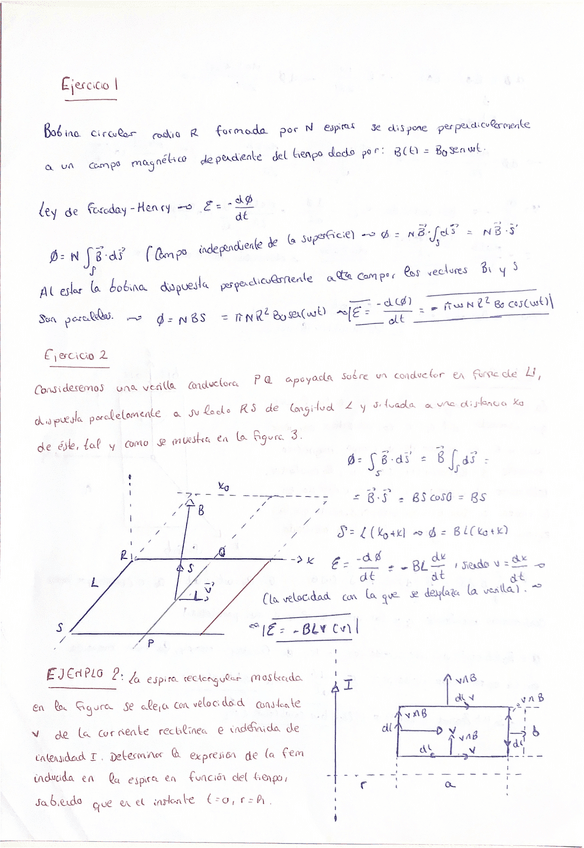 Ejercicio 1
Bobina circular radio R formada por N espiras se dispone perpendicularmente
a un campo magnético dependiente del tiempo dado por: B(t) = B₀ sen ωt.
Ley de Faraday-Henry → ε = -dφ/dt
φ = N ∫ₛ B⃗·ds⃗ (Campo independiente de la superficie) → φ = N B⃗·∫ₛ ds⃗ = N B⃗·S⃗
Al estar la bobina dispuesta perpendicularmente al campo los vectores B y S
son paralelos. → φ = NBS = πNR²B₀ sen(ωt) → |ε = -d(φ)/dt = -πωNR²B₀ cos(ωt)|
Ejercicio 2
Consideremos una varilla conductora PQ apoyada sobre un conductor en forma de U,
dispuesta paralelamente a su lado RS de longitud L y situada a una distancia x₀
de éste, tal y como se muestra en la figura 3.
φ = ∫ₛ B⃗·ds⃗ = B⃗ ∫ₛ ds⃗ =
= B⃗·S⃗ = BS cosθ = BS
S = L(x₀+x) → φ = BL(x₀+x)
ε = -dφ/dt = -BL dx/dt, siendo v = dx/dt →
(la velocidad con la que se desplaza la varilla). →
→ |ε = -BLv (V)|
x₀
B
R
Q
x
S
L
v⃗
S
P
EJEMPLO 2: La espira rectangular mostrada
en la figura se aleja con velocidad constante
v de la corriente rectilínea e indefinida de
intensidad I. Determinar la expresión de la fem
inducida en la espira en función del tiempo,
sabiendo que en el instante t=0, r=
I
v∧B
dl v
v∧B
v∧B
dl
v
v∧B
dl
b
dl
v
r
a